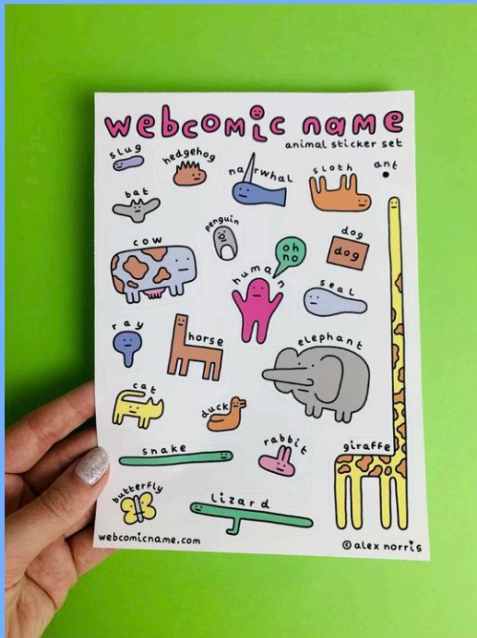 webcomic name
animal sticker set
slug
hedgehog
narwhal
sloth
ant
bat
penguin
dog
dog
cow
oh
no
human
seal
ray
horse
elephant
cat
duck
snake
rabbit
giraffe
butterfly
lizard
webcomicname.com
© alex norris